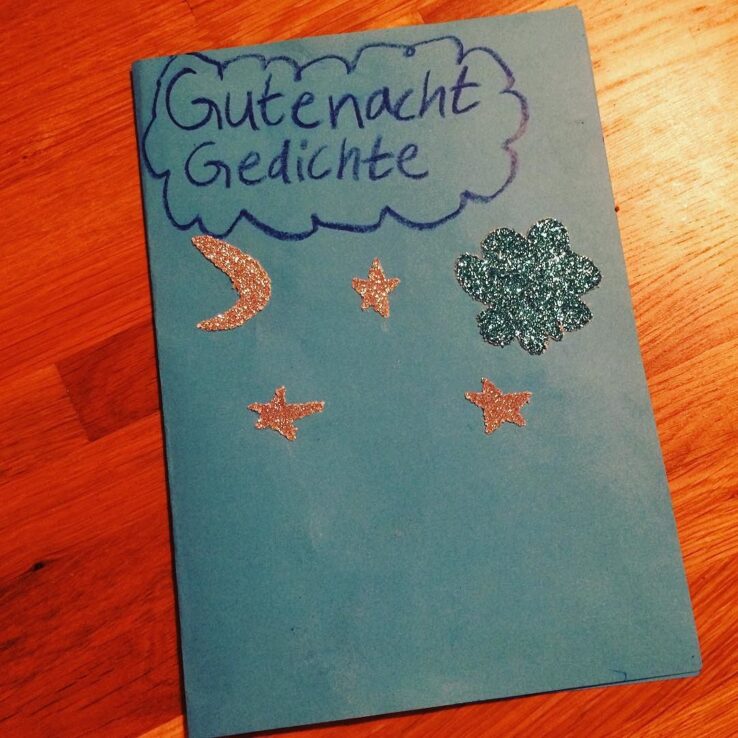 Gutenacht
Gedichte